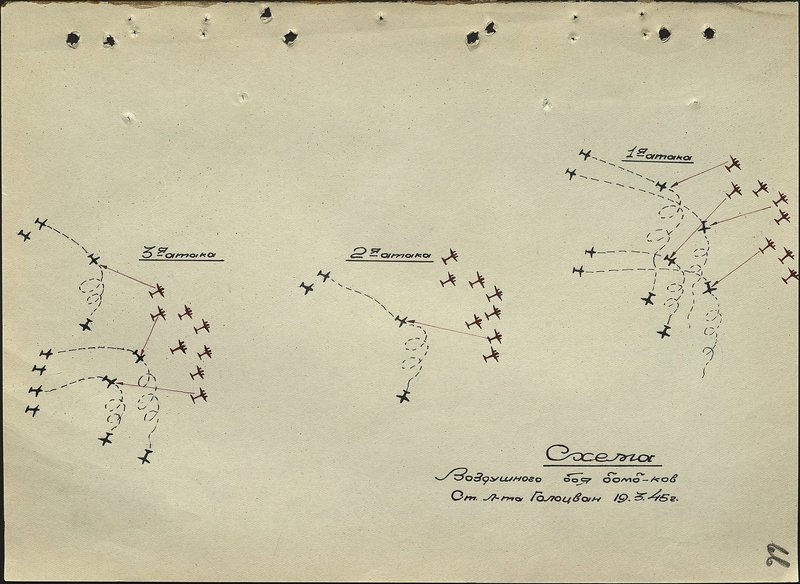 1я атака
3я атака
2я атака
Схема
Воздушного боя бомб-ков
Ст. л-та Голоцван 19.3.45г.